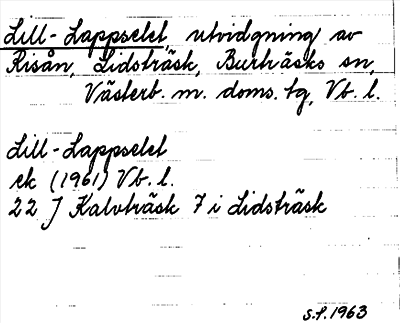 Lill-Lappselet, utvidgning av
Risån, Lidsträsk, Burträsks sn,
Västerb. m. doms. tg, Vb. l.
Lill-Lappselet
ek (1961) Vb. l.
22 J Kalvträsk 7 i Lidsträsk
S.F. 1963